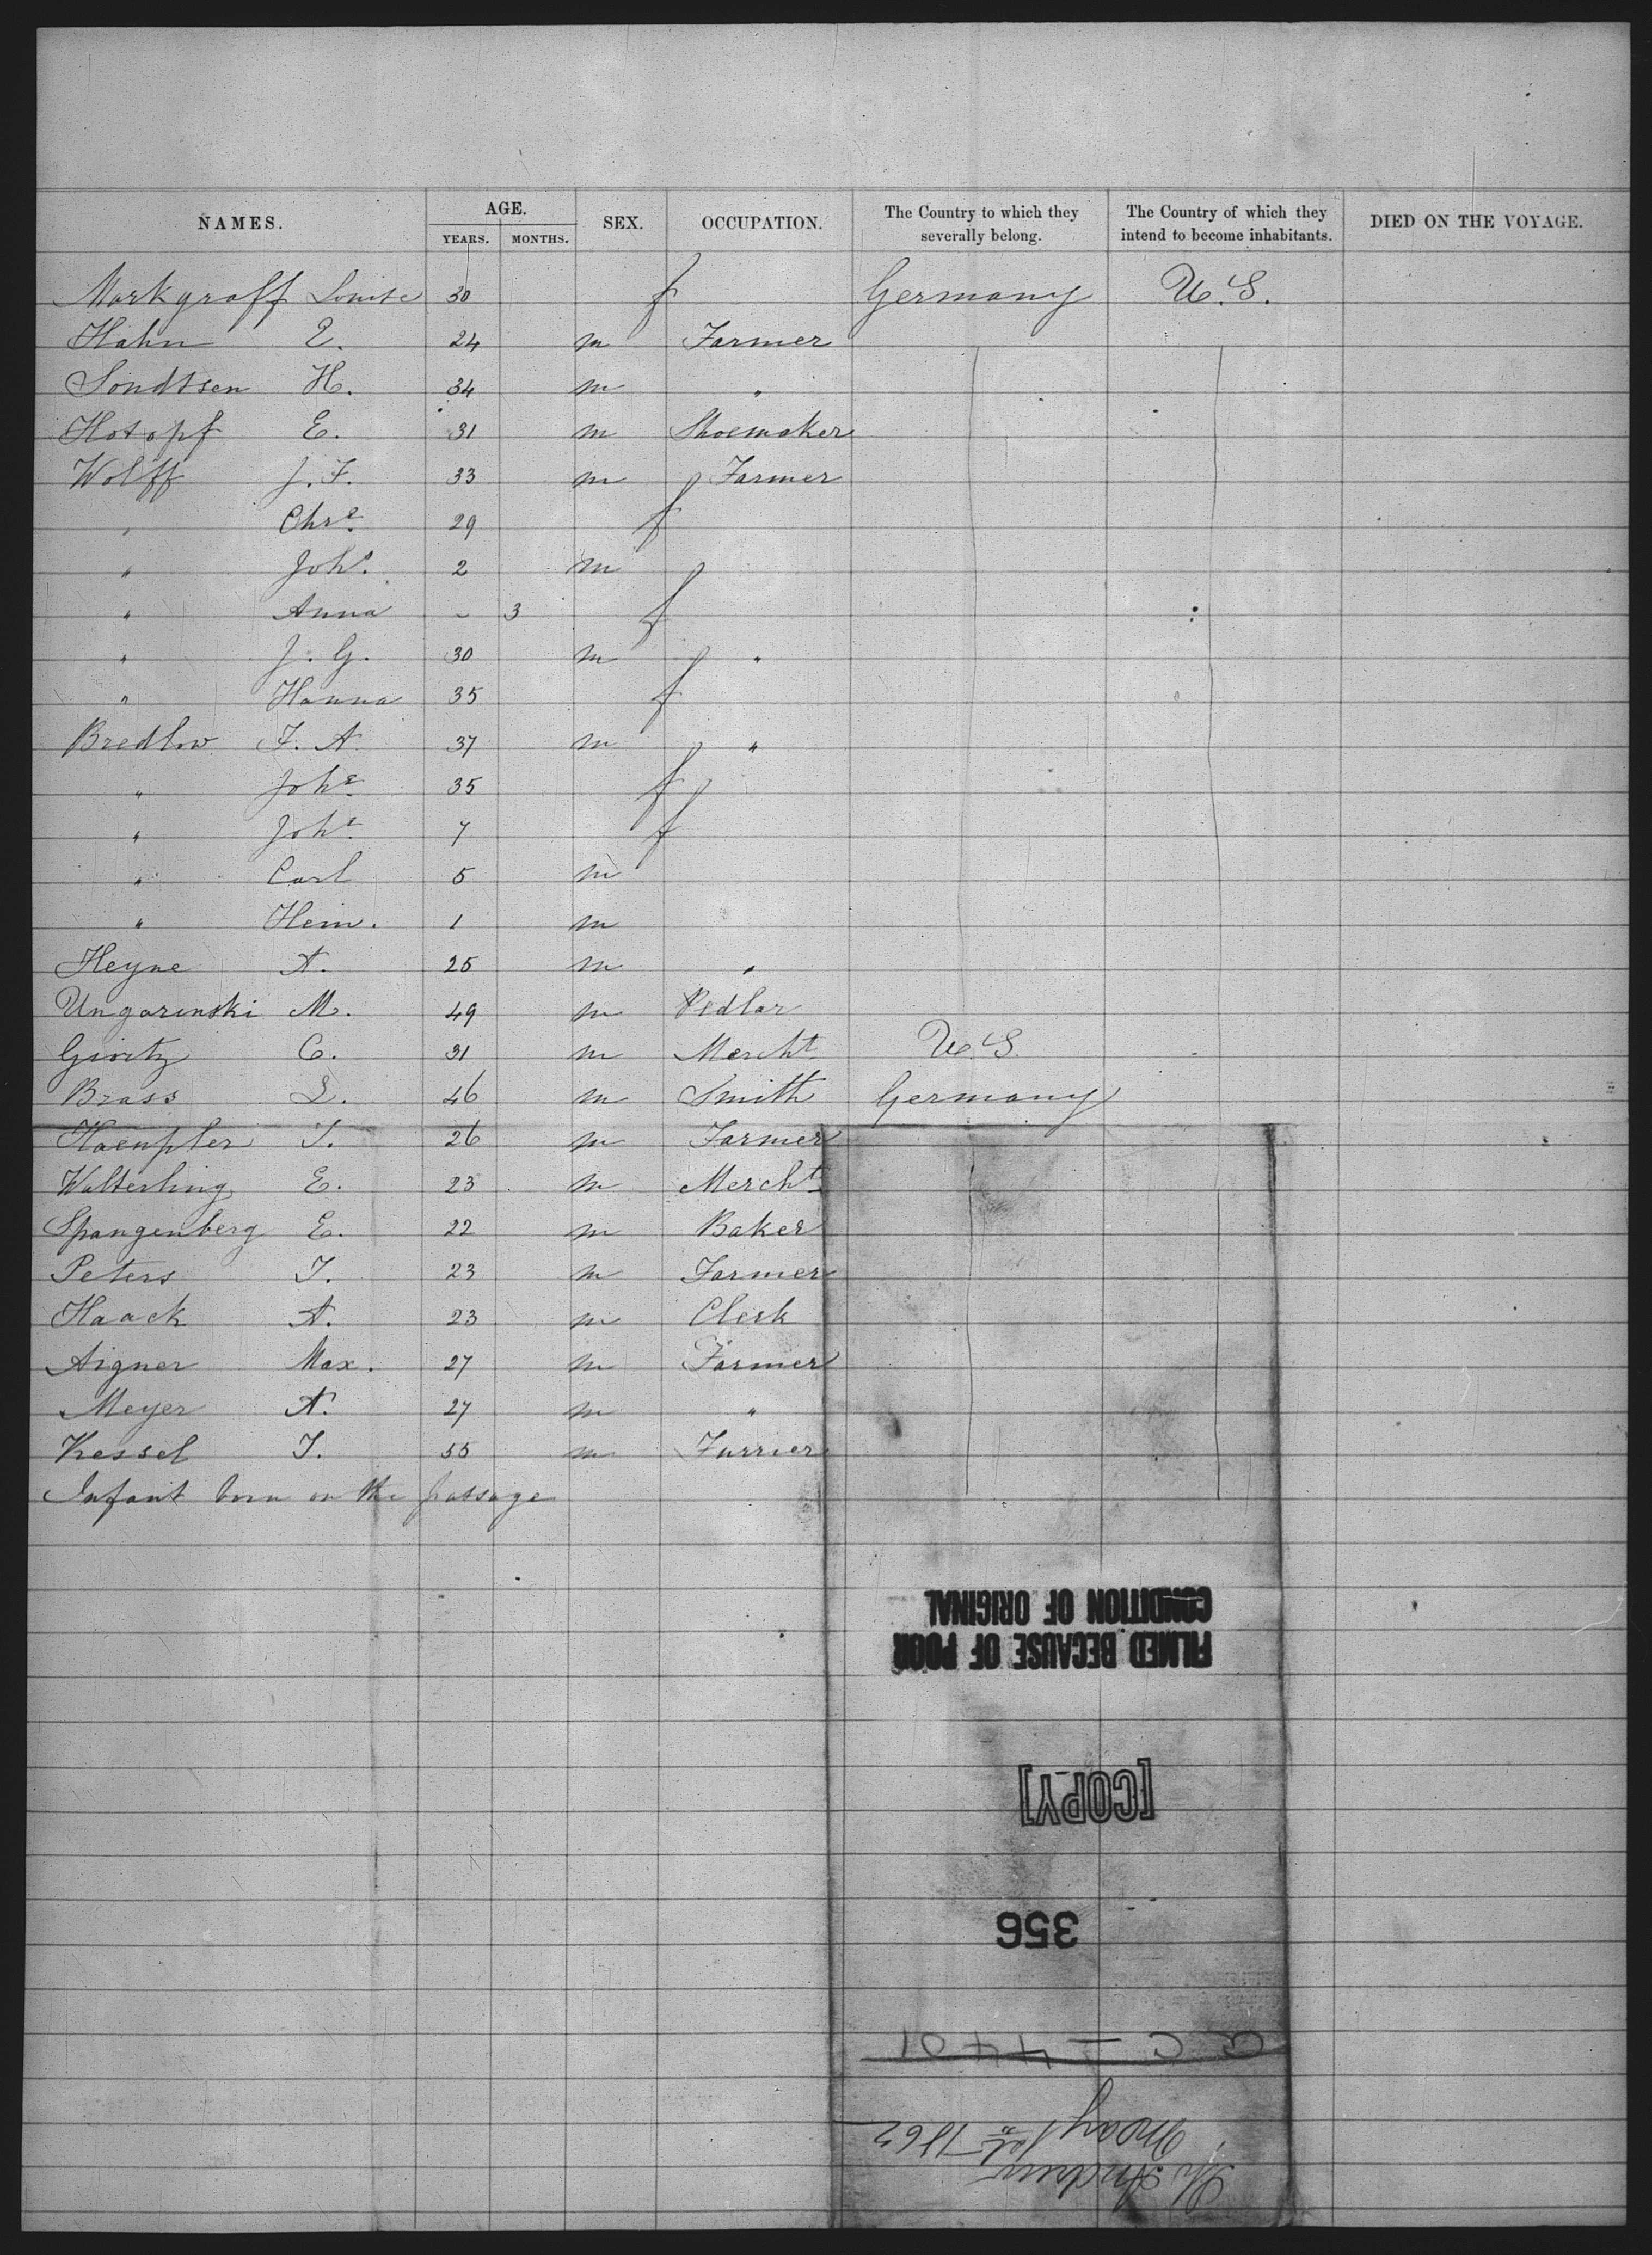 NAMES. AGE. SEX. OCCUPATION. The Country to which they severally belong. The Country of which they intend to become inhabitants. DIED ON THE VOYAGE.
YEARS. MONTHS.
Markgraff Louise 30 f Germany U.S.
Hahn E. 24 m Farmer
Sondtsen H. 34 m "
Hotopf E. 31 m Shoemaker
Wolff J. F. 33 m Farmer
" Chre. 29 f
" Johs. 2 m
" Anna - 3 f
" J. G. 30 m "
" Hanna 35 f
Bredlow F. A. 37 m "
" Johe. 35 f
" Johe. 7 f
" Carl 5 m
" Hein. 1 m
Heyne A. 25 m "
Ungarinski M. 49 m Pedlar
Giritz C. 31 m Mercht. U.S.
Brass L. 46 m Smith Germany
Haempler I. 26 m Farmer
Walterling E. 23 m Mercht.
Spangenberg E. 22 m Baker
Peters I. 23 m Farmer
Haack A. 23 m Clerk
Aigner Max. 27 m Farmer
Meyer A. 27 m "
Kessel I. 55 m Furrier
Infant born on the passage
FILMED BECAUSE OF POOR
CONDITION OF ORIGINAL
[COPY]
356
May 1st 1862